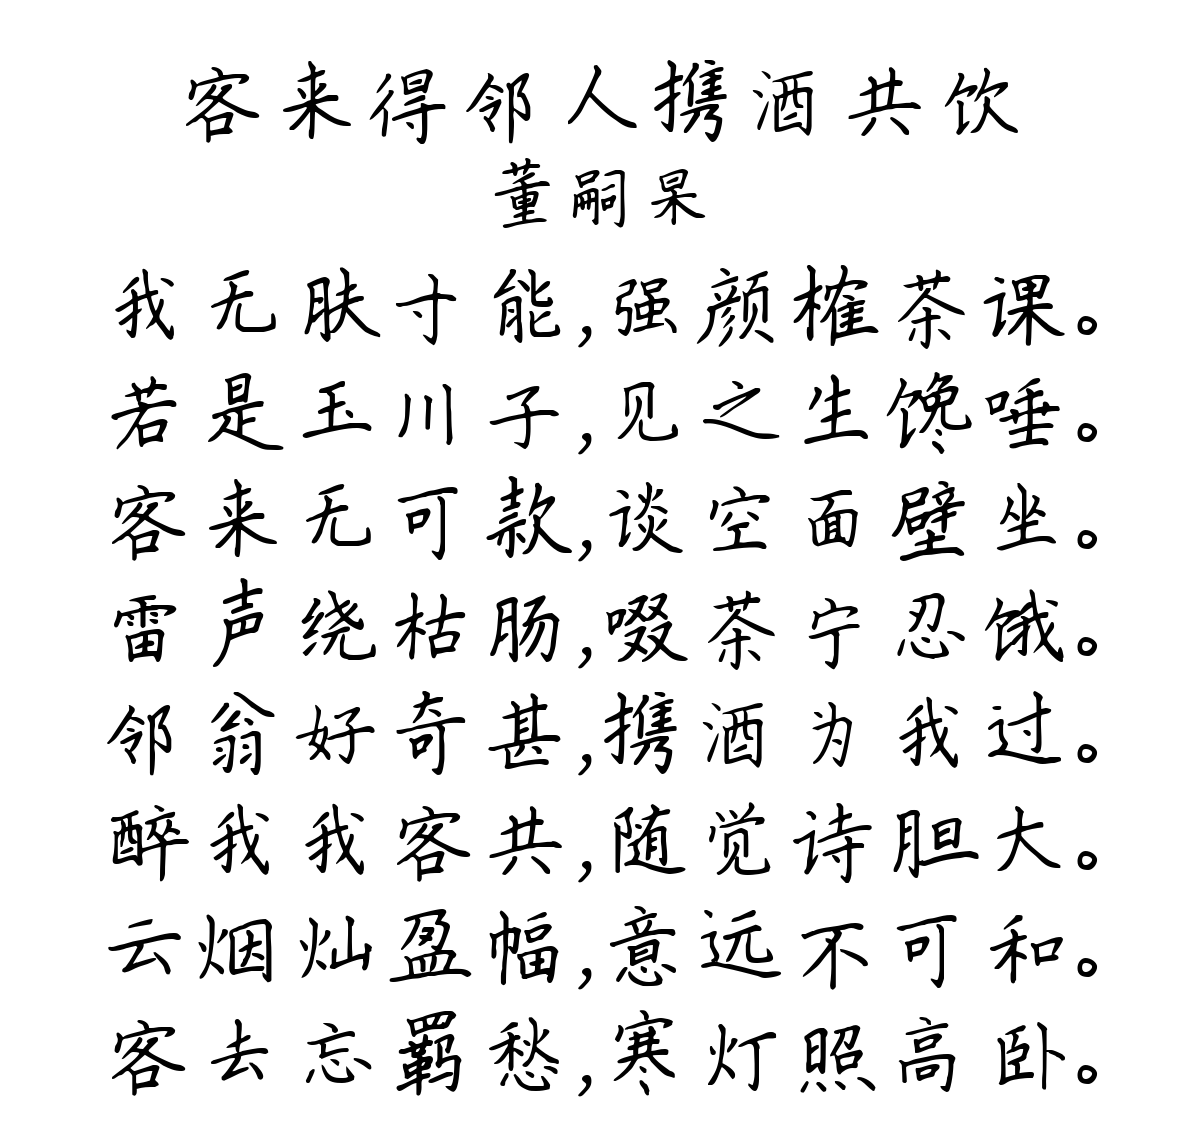 客来得邻人携酒共饮
董嗣杲
我无肤寸能,强颜榷茶课。
若是玉川子,见之生馋唾。
客来无可款,谈空面壁坐。
雷声绕枯肠,啜茶宁忍饿。
邻翁好奇甚,携酒为我过。
醉我我客共,随觉诗胆大。
云烟灿盈幅,意远不可和。
客去忘羁愁,寒灯照高卧。